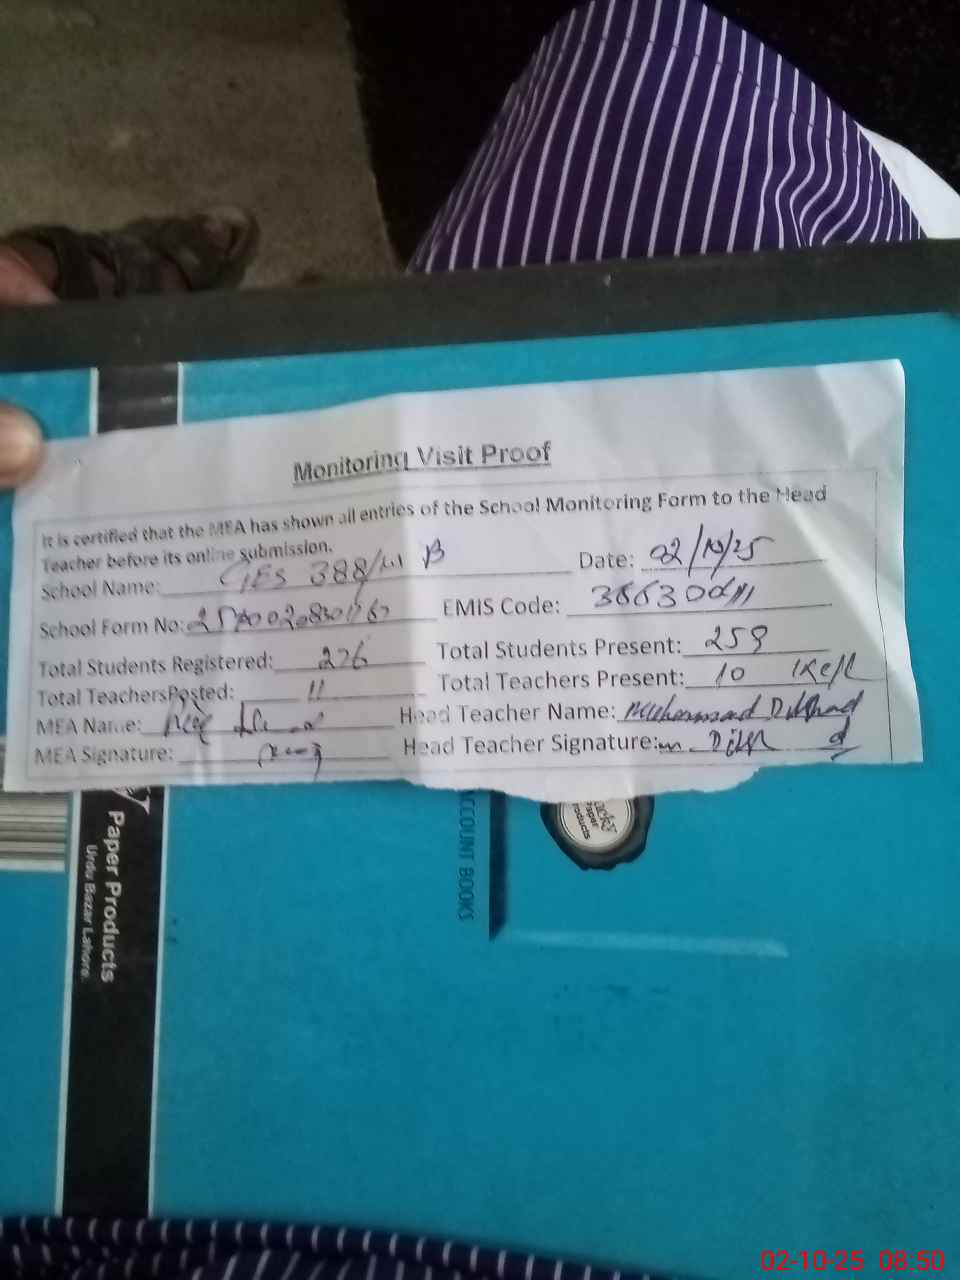 Monitoring Visit Proof
It is certified that the MEA has shown all entries of the School Monitoring Form to the Head
Teacher before its online submission.
School Name: GES 388/ B Date: 02/10/25
School Form No: EMIS Code:
Total Students Registered: Total Students Present: 259
Total TeachersPosted: 11 Total Teachers Present: 10
MEA Name: Head Teacher Name: Muhammad Dilshad
MEA Signature: Head Teacher Signature:
Paper Products
Urdu Bazar Lahore.
ACCOUNT BOOKS
Paper
Products
02-10-25 08:50